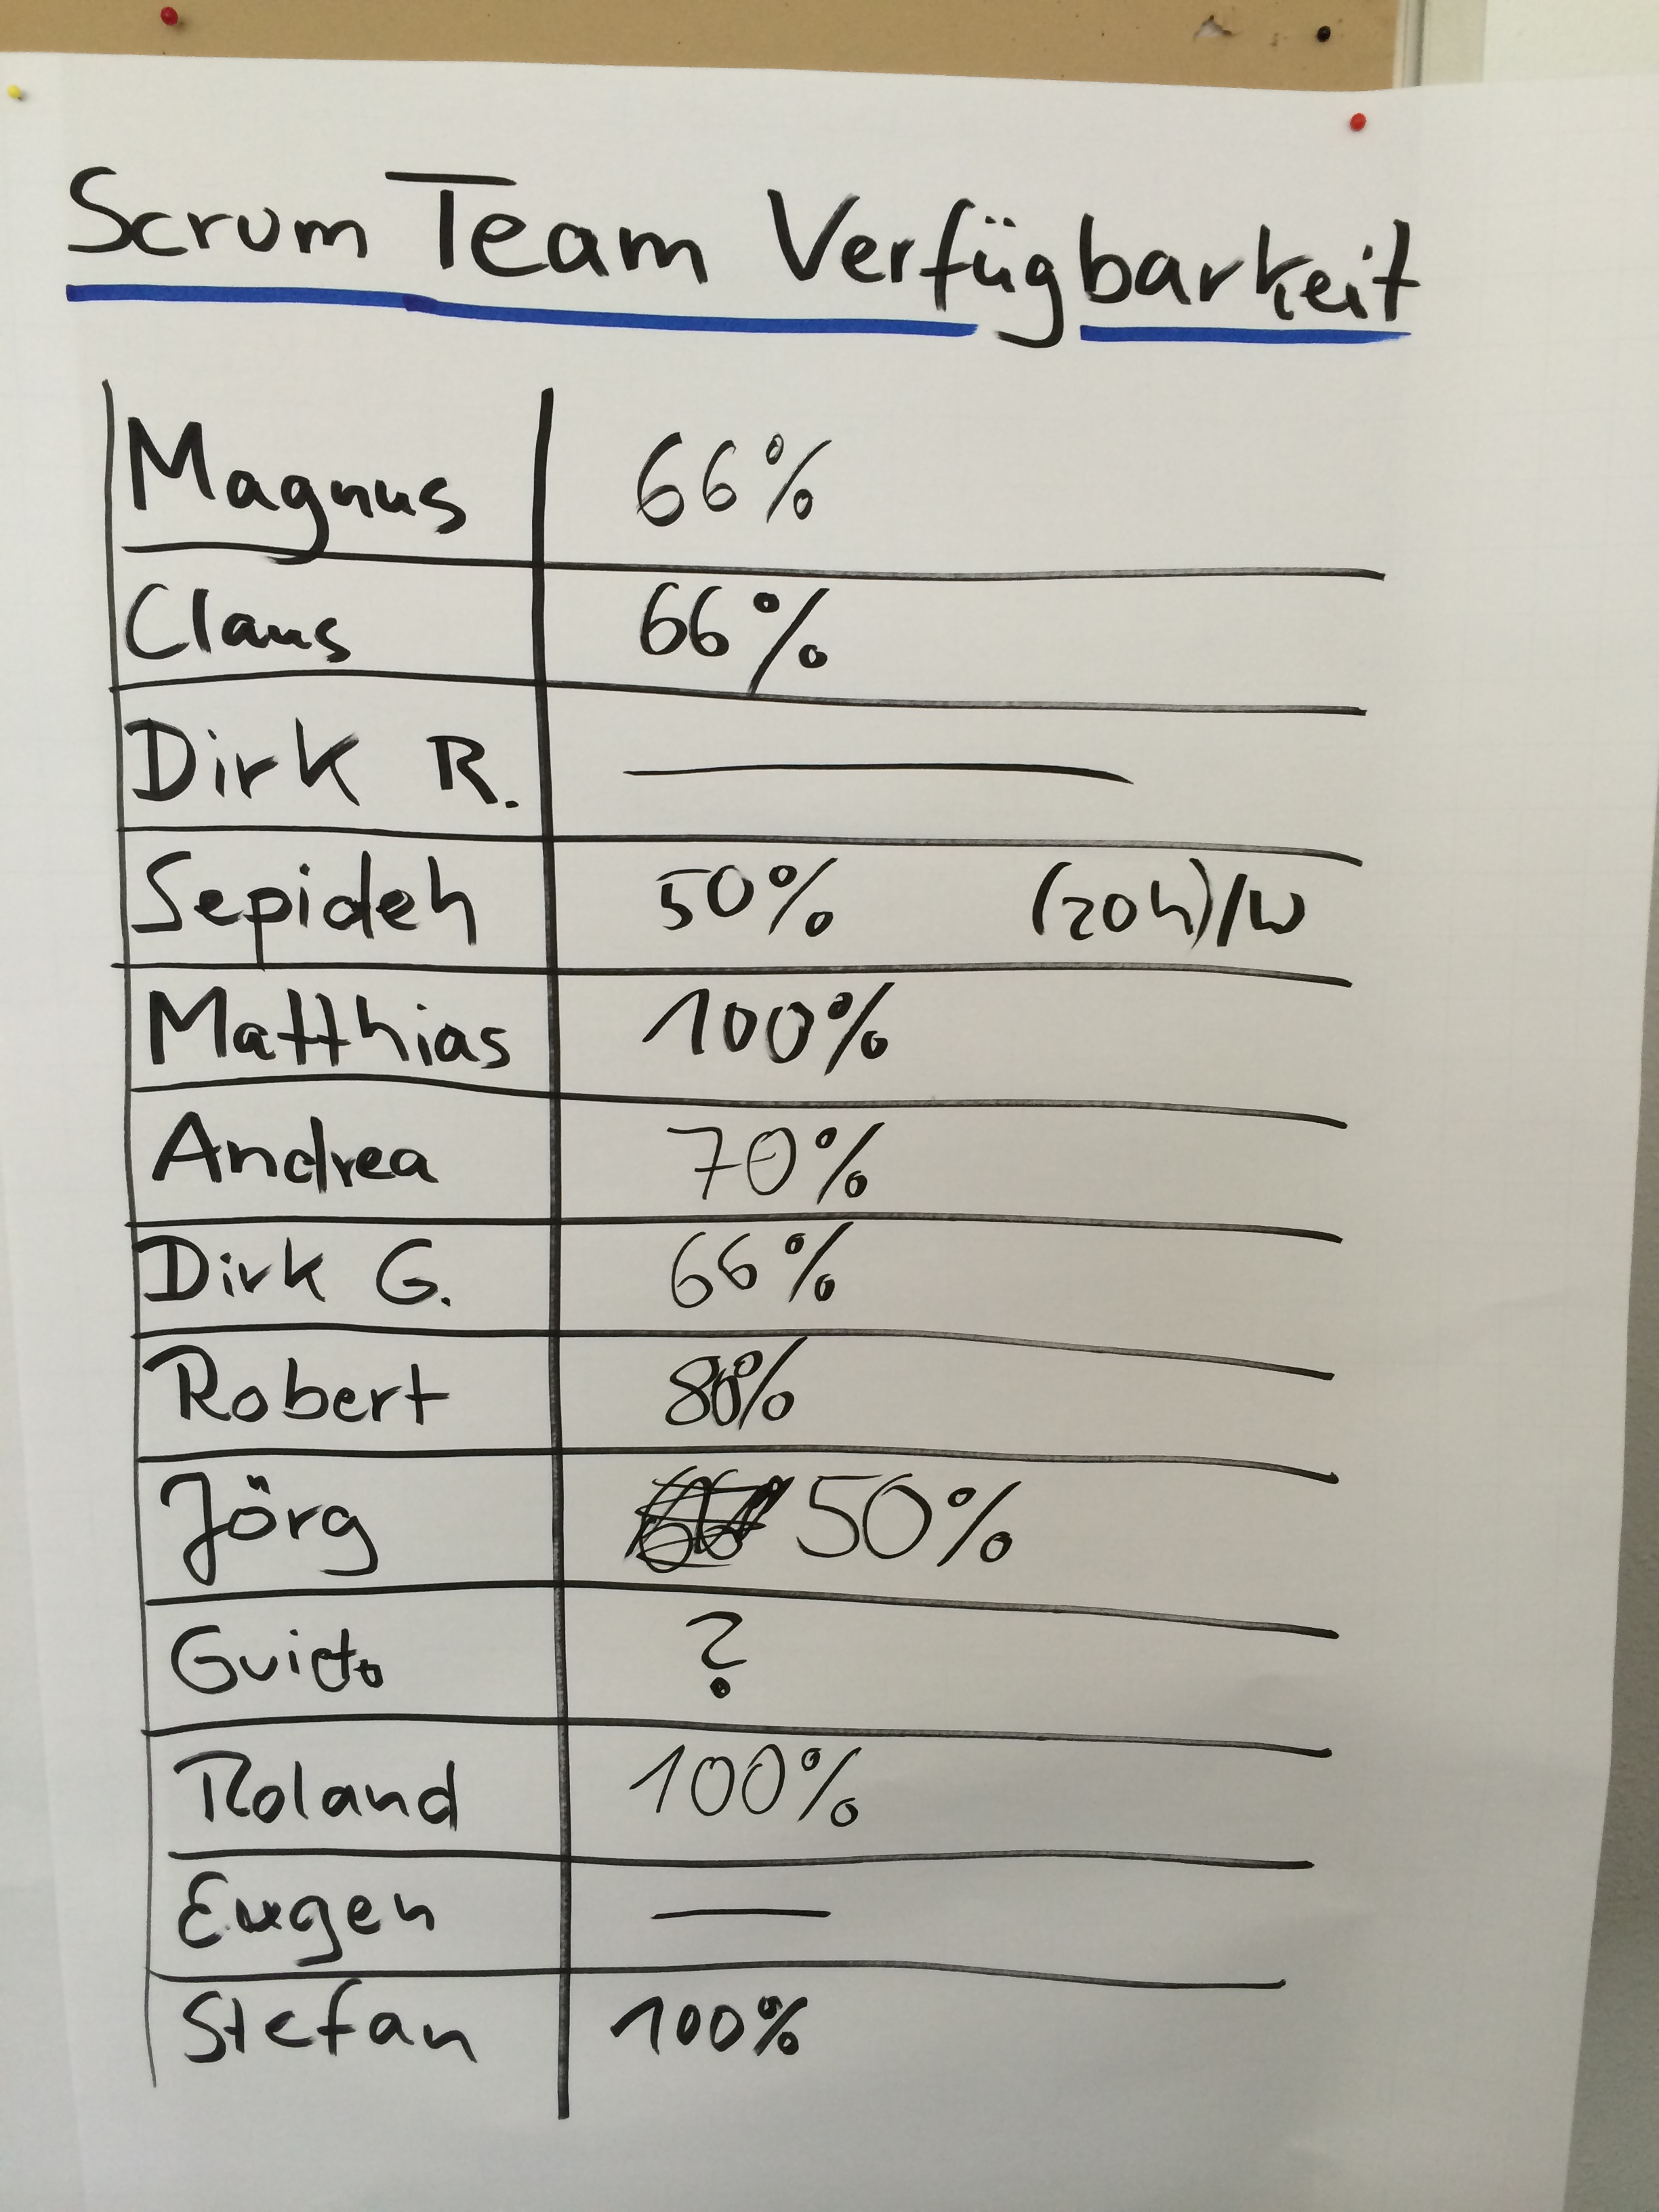 Scrum Team Verfügbarkeit
Magnus 66%
Claus 66%
Dirk R. —
Sepideh 50% (20h)/W
Matthias 100%
Andrea 70%
Dirk G. 66%
Robert 80%
Jörg 50%
Guido ?
Roland 100%
Eugen —
Stefan 100%